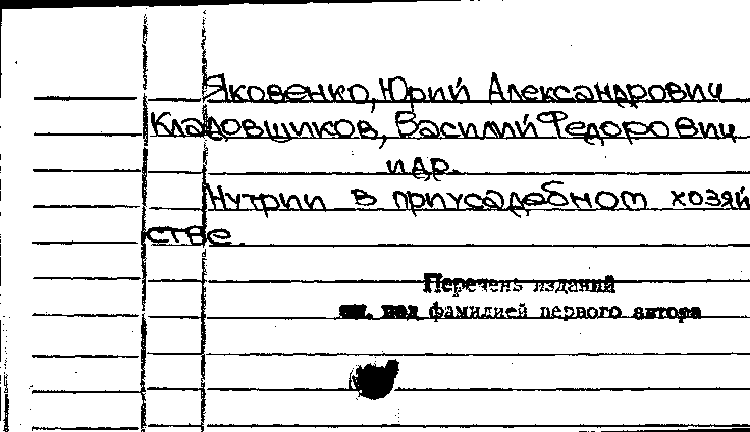 Яковенко, Юрий Александрович
Кладовщиков, Василий Федорович
и др.
Нутрии в приусадебном хозяй
стве.
Перечень изданий
см. под фамилией первого автора